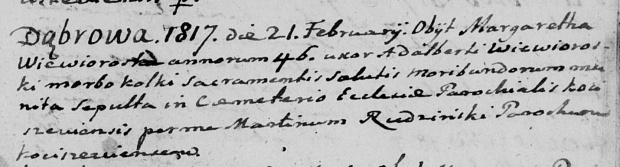 Dąbrowa. 1817. die 21. Februarij. Obijt Margaretha
Wiewiorosk annorum 46. uxor Adalberti Wiewioros-
ki morbo kolki sacramentis salutis moribundorum mu
nita sepulta in Cemeterio Ecclesiæ Parochialis koci
szeviensis per me Martinum Rudzinski Parochum
kociszeviensem